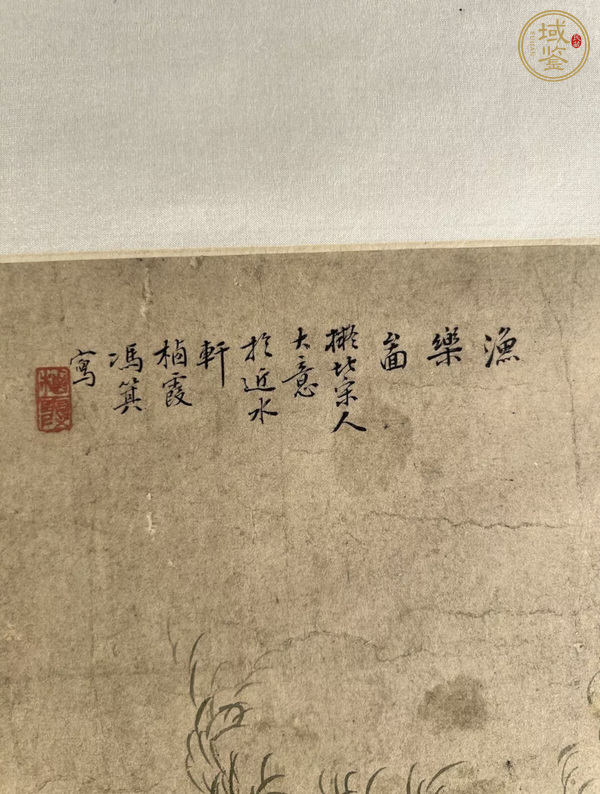 域鉴
漁
樂
啚
擬北宋人
大意
於近水
軒
霞
馮箕
寫